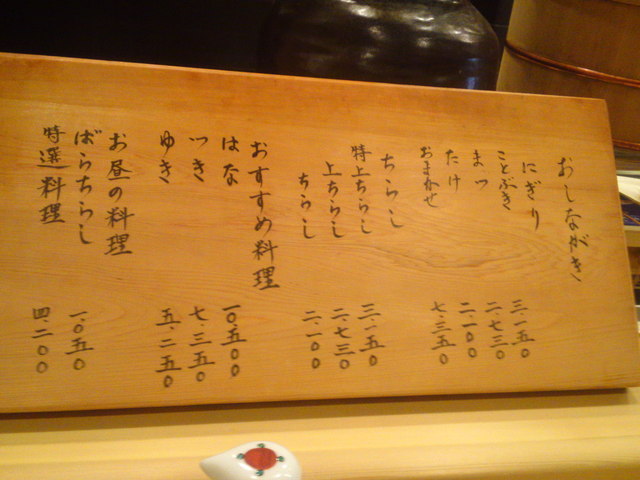 おしながき
にぎり
ことぶき 三・一五〇
まつ 二・七三〇
たけ 二・一〇〇
おまかせ 七・三五〇
ちらし
特上ちらし 三・一五〇
上ちらし 二・七三〇
ちらし 二・一〇〇
おすすめ料理
はな 一〇・五〇〇
つき 七・三五〇
ゆき 五・二五〇
お昼の料理
ばらちらし 一・〇五〇
特選料理 四・二〇〇